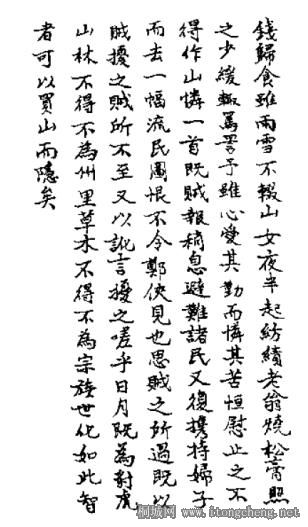 錢歸食雖雨雪不輟山女夜半起紡績老翁燒松膏照
之少緩輒罵詈予雖心愛其勤而憐其苦恒慰止之不
得作山憐一首既賊報稍息避難諸民又復攜持婦子
而去一幅流民圖恨不令鄭俠見也思賊之所過既以
賊擾之賊所不至又以訛言擾之嗟乎日月既為對虎
山林不得不為州里草木不得不為宗族世化如此智
者可以買山而隱矣
桐城网 www.itongcheng.net